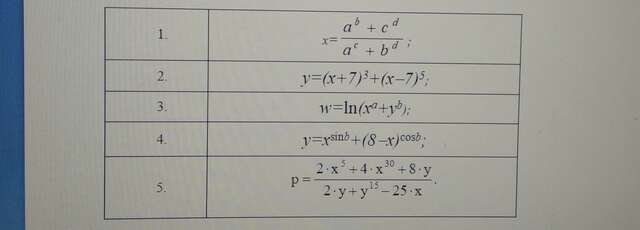 1. x = (a^b + c^d) / (a^c + b^d) ;
2. y=(x+7)³+(x–7)⁵;
3. w=ln(x^a+y^b);
4. y=x^sinb+(8–x)^cosb;
5. p = (2·x^5 + 4·x^30 + 8·y) / (2·y + y^15 – 25·x) .